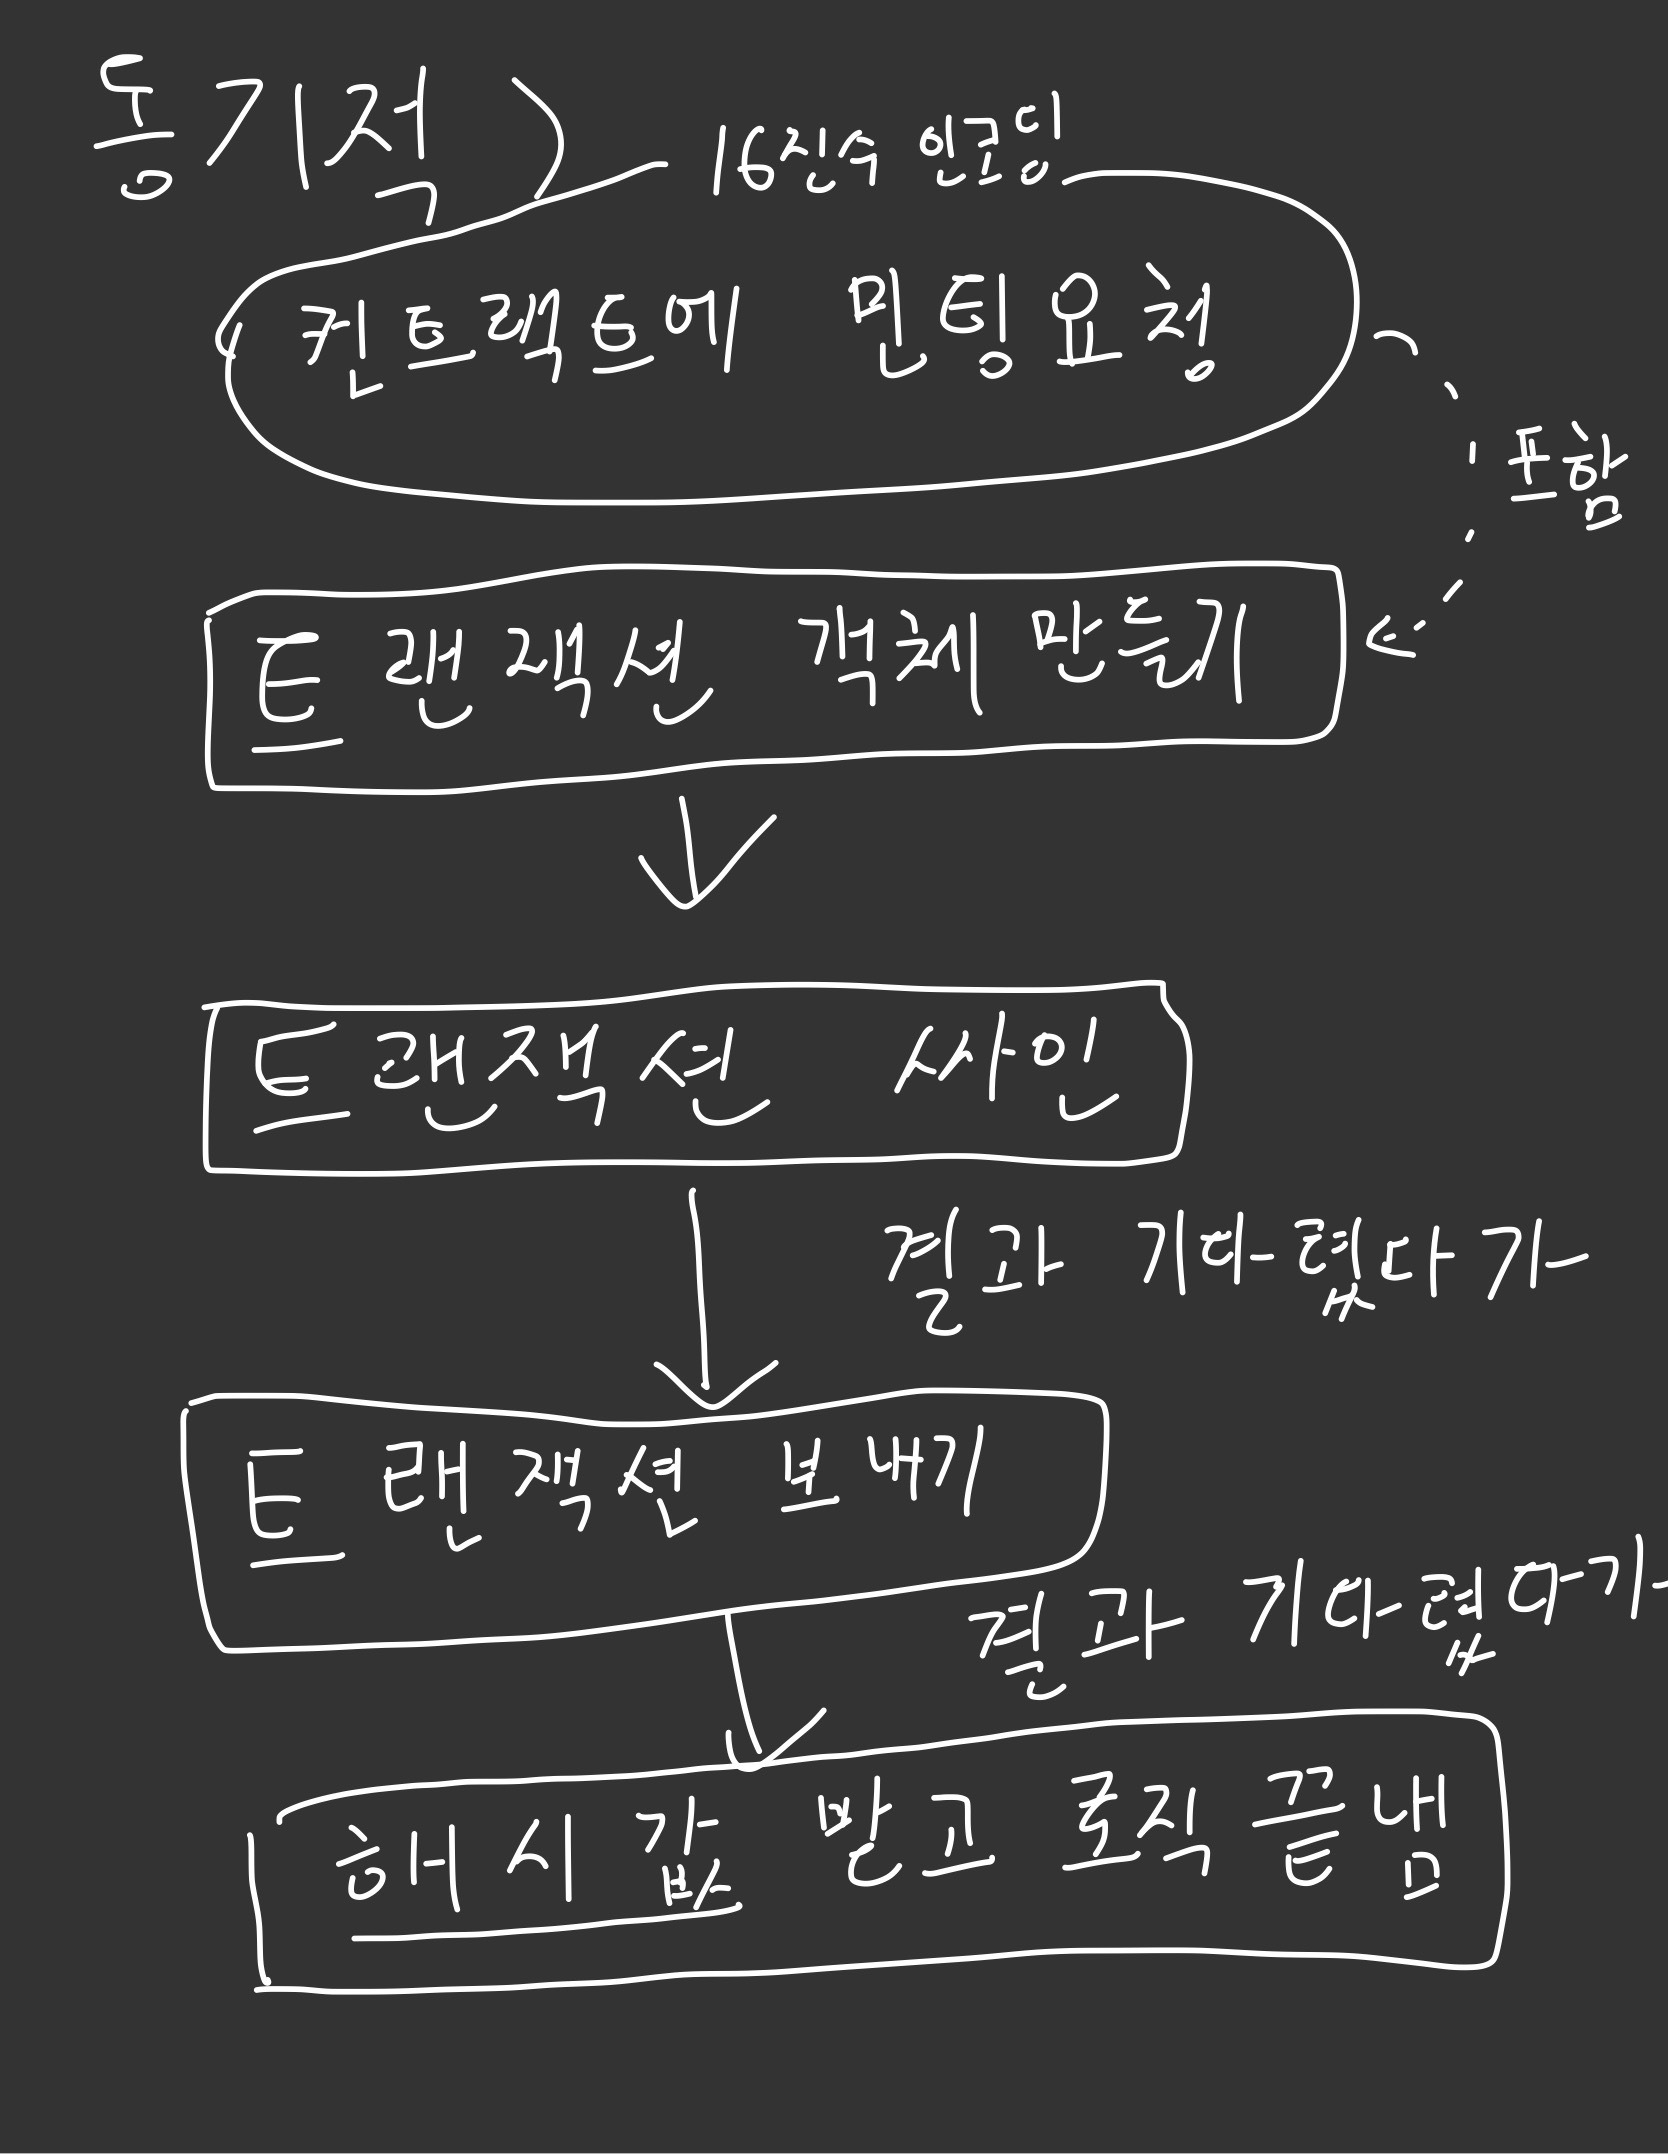 동기적)
16진수 인코딩
컨트랙트에 민팅요청
포함
트랜잭션 객체 만들기
트랜잭션 싸인
결과 기다렸다가
트랜잭션 보내기
결과 기다렸다가
해시값 받고 로직 끝냄